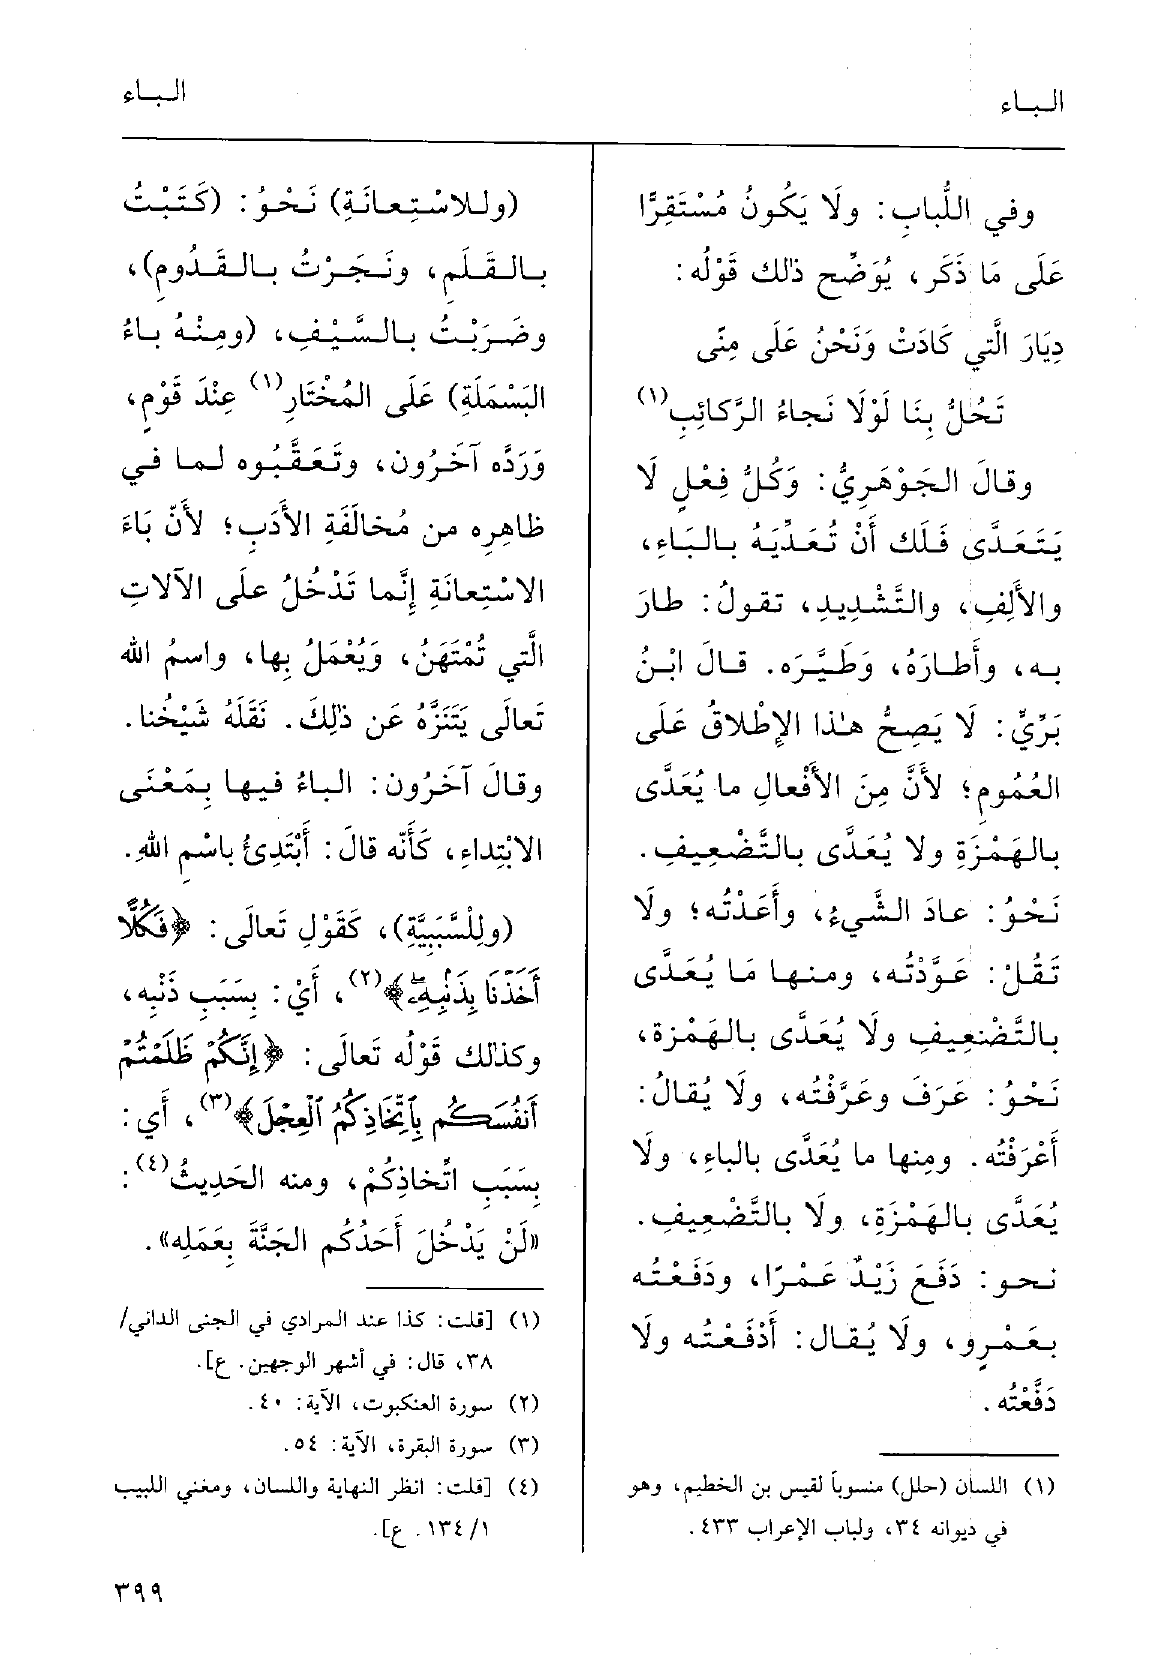 الباء
وفي اللُّبابِ: ولَا يَكُونُ مُسْتَقِرًّا
عَلَى مَا ذَكَر، يُوَضِّح ذٰلك قَوْلُه:
دِيَارَ الَّتي كَادَتْ وَنَحْنُ عَلَى مِنًى
تَحُلُّ بِنَا لَوْلَا نَجاءُ الرَّكائِبِ(١)
وقالَ الجَوْهَرِيُّ: وَكُلُّ فِعْلٍ لَا
يَتَعَدَّى فَلَك أَنْ تُعَدِّيَهُ بالبَاء،
والأَلِفِ، والتَّشْدِيدِ، تقولُ: طارَ
بِه، وأَطارَهُ، وَطَيَّرَه. قالَ ابْنُ
بَرِّيّ: لَا يَصِحُّ هٰذا الإِطْلاقُ عَلَى
العُمُومِ؛ لأَنَّ مِنَ الأَفْعالِ ما يُعَدَّى
بالهَمْزَةِ ولا يُعَدَّى بالتَّضْعِيفِ.
نَحْوُ: عادَ الشَّيءُ، وأَعَدْتُه؛ ولَا
تَقُلْ: عَوَّدْتُه، ومنها مَا يُعَدَّى
بالتَّضْعِيفِ ولَا يُعَدَّى بالهَمْزة،
نَحْوُ: عَرَفَ وعَرَّفْتُه، ولَا يُقالُ:
أَعْرَفْتُه. ومِنها ما يُعَدَّى بالباءِ، ولَا
يُعَدَّى بالهَمْزَةِ، ولَا بالتَّضْعِيفِ.
نحو: دَفَعَ زَيْدٌ عَمْرًا، ودَفَعْتُه
بِعَمْرٍو، ولَا يُقال: أَدْفَعْتُه ولَا
دَفَّعْتُه.
(١) اللسان (حلل) منسوباً لقيس بن الخطيم، وهو
في ديوانه ٣٤، ولباب الإعراب ٤٣٣.
الباء
(وللاسْتِعانَةِ) نَحْوُ: (كَتَبْتُ
بالقَلَمِ، ونَجَرْتُ بالقَدُومِ)،
وضَرَبْتُ بالسَّيْفِ، (ومِنْهُ باءُ
البَسْمَلَةِ) عَلَى المُخْتَارِ(١) عِنْدَ قَوْمٍ،
وَرَدَّه آخَرُون، وتَعَقَّبُوه لما في
ظاهِرِه من مُخالَفَةِ الأَدَبِ؛ لأَنّ بَاءَ
الاسْتِعانَةِ إِنَّما تَدْخُلُ على الآلاتِ
الَّتي تُمْتَهَنُ، وَيُعْمَلُ بِها، واسمُ الله
تَعالَى يَتَنَزَّهُ عَن ذٰلِكَ. نَقَلَهُ شَيْخُنا.
وقالَ آخَرُون: الباءُ فيها بِمَعْنَى
الابْتِداءِ، كَأَنَّه قالَ: أَبْتَدِئُ باسْمِ اللهِ.
(ولِلسَّبَبِيَّةِ)، كَقَوْلِ تَعالَى: ﴿فَكُلًّا
أَخَذْنَا بِذَنْبِهِۦ﴾(٢)، أَيْ: بِسَبَبِ ذَنْبِه،
وكذٰلك قَوْلُه تَعالَى: ﴿إِنَّكُمْ ظَلَمْتُمْ
أَنفُسَكُم بِٱتِّخَاذِكُمُ ٱلْعِجْلَ﴾(٣)، أَي:
بِسَبَبِ اتِّخاذِكُمْ، ومنه الحَدِيثُ(٤):
«لَنْ يَدْخُلَ أَحَدُكُم الجَنَّةَ بِعَمَلِه».
(١) [قلت: كذا عند المرادي في الجنى الداني/
٣٨، قال: في أشهر الوجهين. ع].
(٢) سورة العنكبوت، الآية: ٤٠.
(٣) سورة البقرة، الآية: ٥٤.
(٤) [قلت: انظر النهاية واللسان، ومغني اللبيب
١/ ١٣٤. ع].
٣٩٩